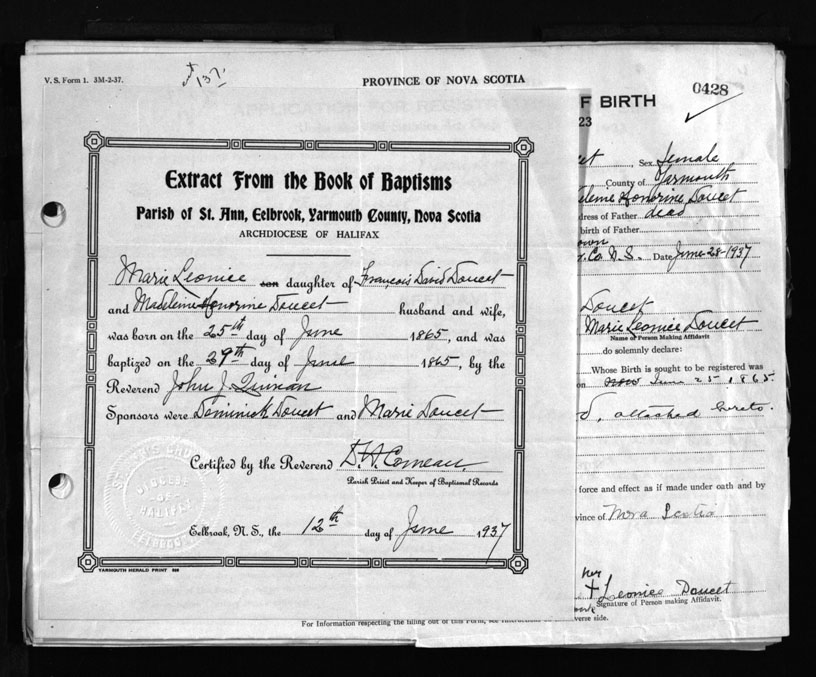 V. S. Form 1. 3M-2-37.
137
PROVINCE OF NOVA SCOTIA
Extract From the Book of Baptisms
Parish of St. Ann, Eelbrook, Yarmouth County, Nova Scotia
ARCHDIOCESE OF HALIFAX
Marie Leonice son daughter of François David Doucet
and Madeleine Honorine Doucet husband and wife,
was born on the 25th day of June 1865, and was
baptized on the 29th day of June 1865, by the
Reverend John J. Quinan
Sponsors were Dominick Doucet and Marie Doucet
Certified by the Reverend D. A. Comeau
Parish Priest and Keeper of Baptismal Records
Eelbrook, N. S., the 12th day of June 1937
YARMOUTH HERALD PRINT
DIOCESE
OF
HALIFAX
EELBROOK
For Information respecting the filling out of this Form, see Instructions
verse side.
0428
F BIRTH
23
Sex female
County of Yarmouth
Honorine Doucet
dress of Father dead
birth of Father
own
Co. N. S. Date June 28-1937
Doucet
Marie Leonice Doucet
Name of Person Making Affidavit
do solemnly declare:
Whose Birth is sought to be registered was
on June 25 1865.
attached hereto.
force and effect as if made under oath and by
vince of Nova Scotia
her
X Leonice Doucet
Signature of Person making Affidavit.